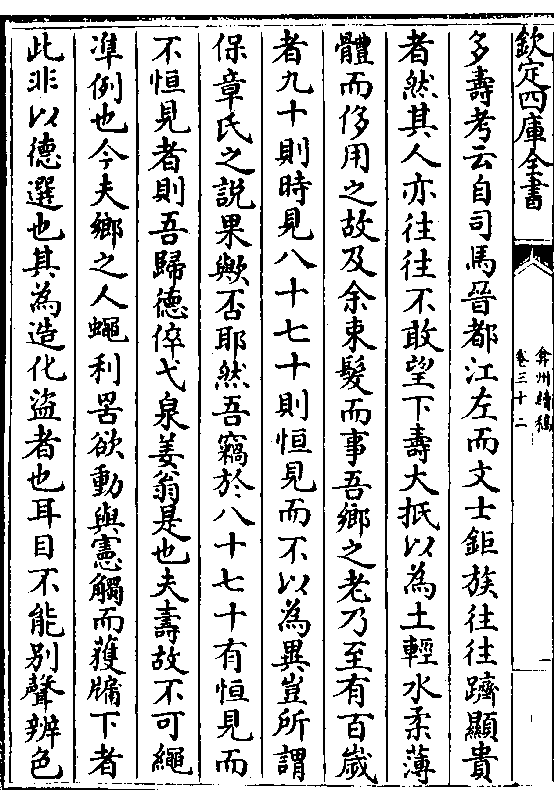 欽定四庫全書
弇州續稿
卷三十二
多壽考云自司馬晉都江左而文士鉅族往往躋顯貴
者然其人亦往往不敢望下壽大抵以為土輕水柔薄
體而侈用之故及余束髮而事吾鄉之老乃至有百歲
者九十則時見八十七十則恒見而不以為異豈所謂
保章氏之説果歟否耶然吾竊於八十七十有恒見而
不恒見者則吾歸德倅弋泉姜翁是也夫壽故不可繩
凖例也今夫鄉之人蠅利罟欲動與憲觸而蔓牖下者
此非以德選也其為造化盜者也耳目不能别聲辨色